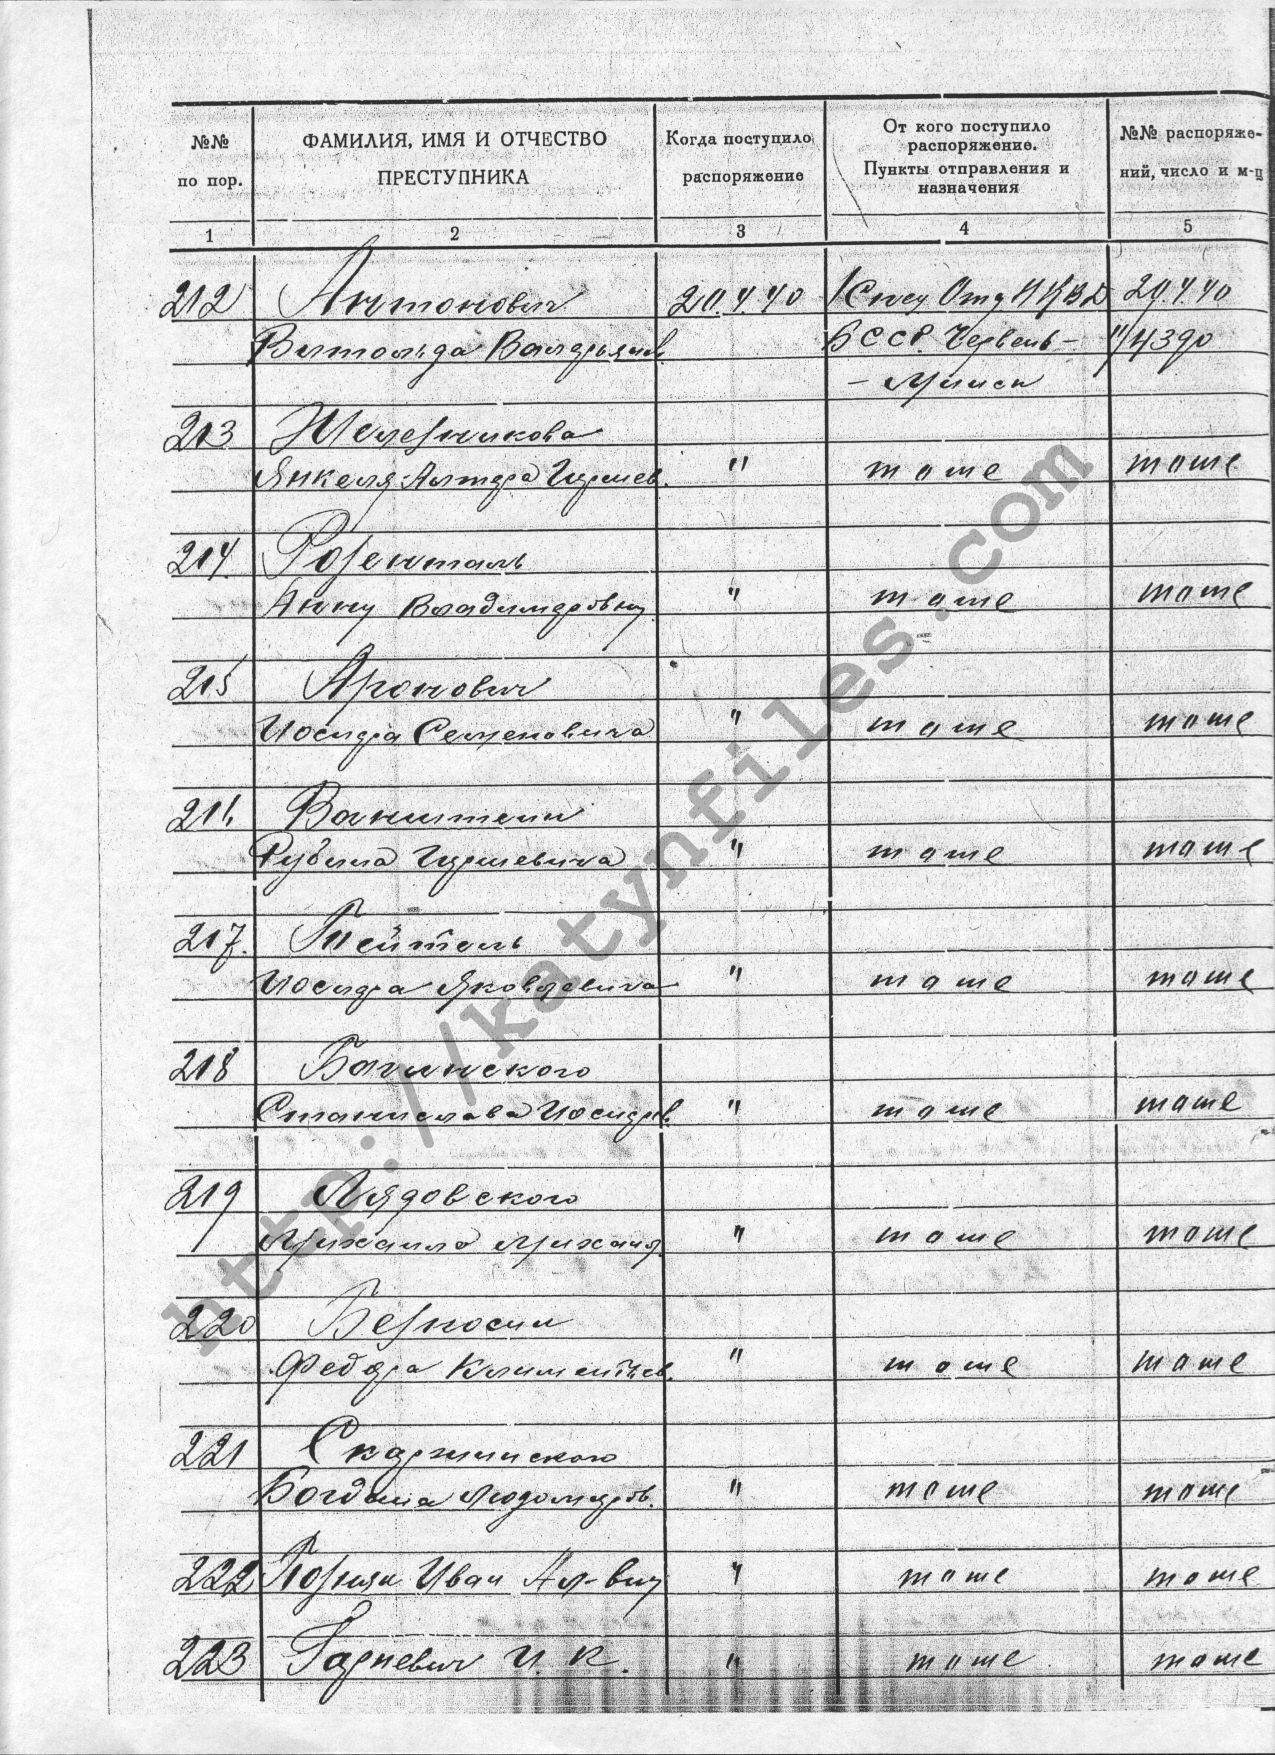 №№ по пор.
ФАМИЛИЯ, ИМЯ И ОТЧЕСТВО ПРЕСТУПНИКА
Когда поступило распоряжение
От кого поступило распоряжение. Пункты отправления и назначения
№№ распоряже-ний, число и м-ц
1 2 3 4 5
212 Антонович 20.4.40 Конв Отд НКВД 20.4.40
Витольда Валерьянов. БССР. Червень –
– Минск
213 Железникова
Янкеля-Альтера Гиршев. " тоже тоже
214. Розенталь
Анну Владимировну. " тоже тоже
215 Аронович
Иосифа Семеновича " тоже тоже
216 Ванштейн
Рубина Гиршевича " тоже тоже
217. Тейталь
Иосифа Яковлевича " тоже тоже
218 Багинского
Станислава Иосифов. " тоже тоже
219 Лядовского
Михаила Михайл. " тоже тоже
220 Безносик
Федора Климентьев. " тоже тоже
221 Скаржинского
Богдана Людомиров. " тоже тоже
222 Позняк Иван Ал-вич " тоже тоже
223 Гаркевич И. К. " тоже тоже
http://katynfiles.com